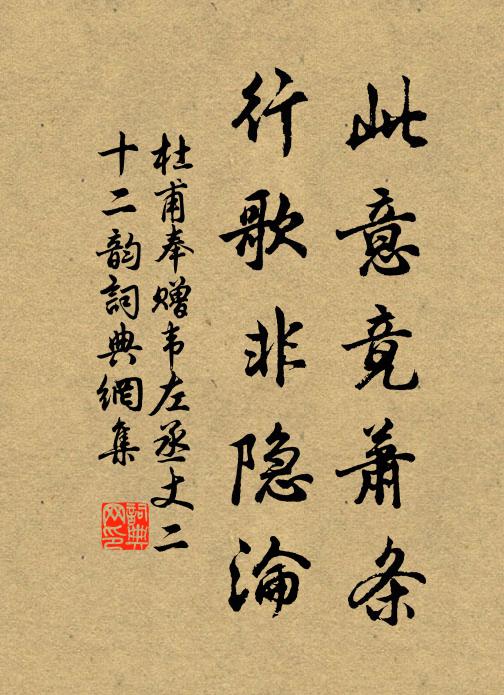 此意竟萧条
行歌非隐淪
杜甫奉赠韦左丞丈二
十二韵詞典網集
詞典网印